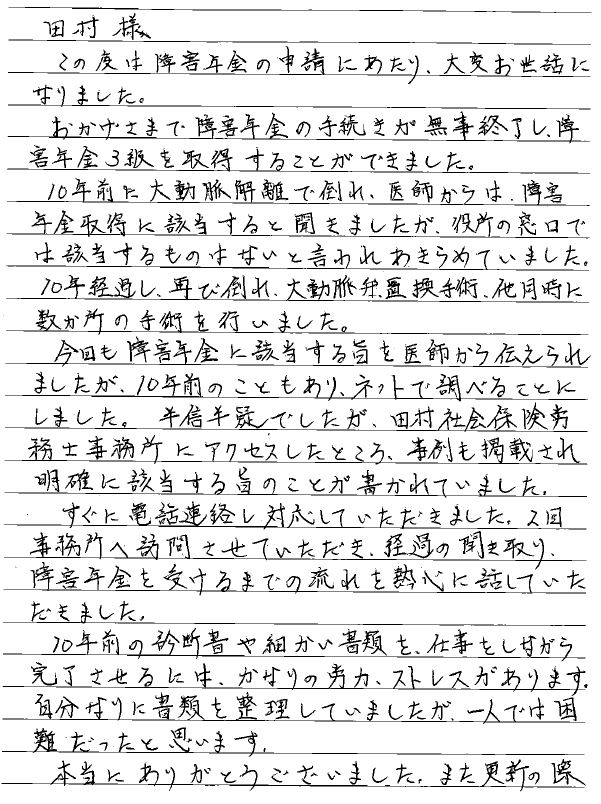 田村様
この度は障害年金の申請にあたり、大変お世話に
なりました。
おかげさまで障害年金の手続きが無事終了し、障
害年金3級を取得することができました。
10年前に大動脈解離で倒れ、医師からは、障害
年金取得に該当すると聞きましたが、役所の窓口で
は該当するものはないと言われあきらめていました。
10年経過し、再び倒れ、大動脈弁置換手術、他同時に
数か所の手術を行いました。
今回も障害年金に該当する旨を医師から伝えられ
ましたが、10年前のこともあり、ネットで調べることに
しました。半信半疑でしたが、田村社会保険労
務士事務所にアクセスしたところ、事例も掲載され
明確に該当する旨のことが書かれていました。
すぐに電話連絡し対応していただきました。2回
事務所へ訪問させていただき、経過の聞き取り、
障害年金を受けるまでの流れを熱心に話していた
だきました。
10年前の診断書や細かい書類を、仕事をしながら
完了させるには、かなりの労力、ストレスがあります。
自分なりに書類を整理していましたが、一人では困
難だったと思います。
本当にありがとうございました。また更新の際